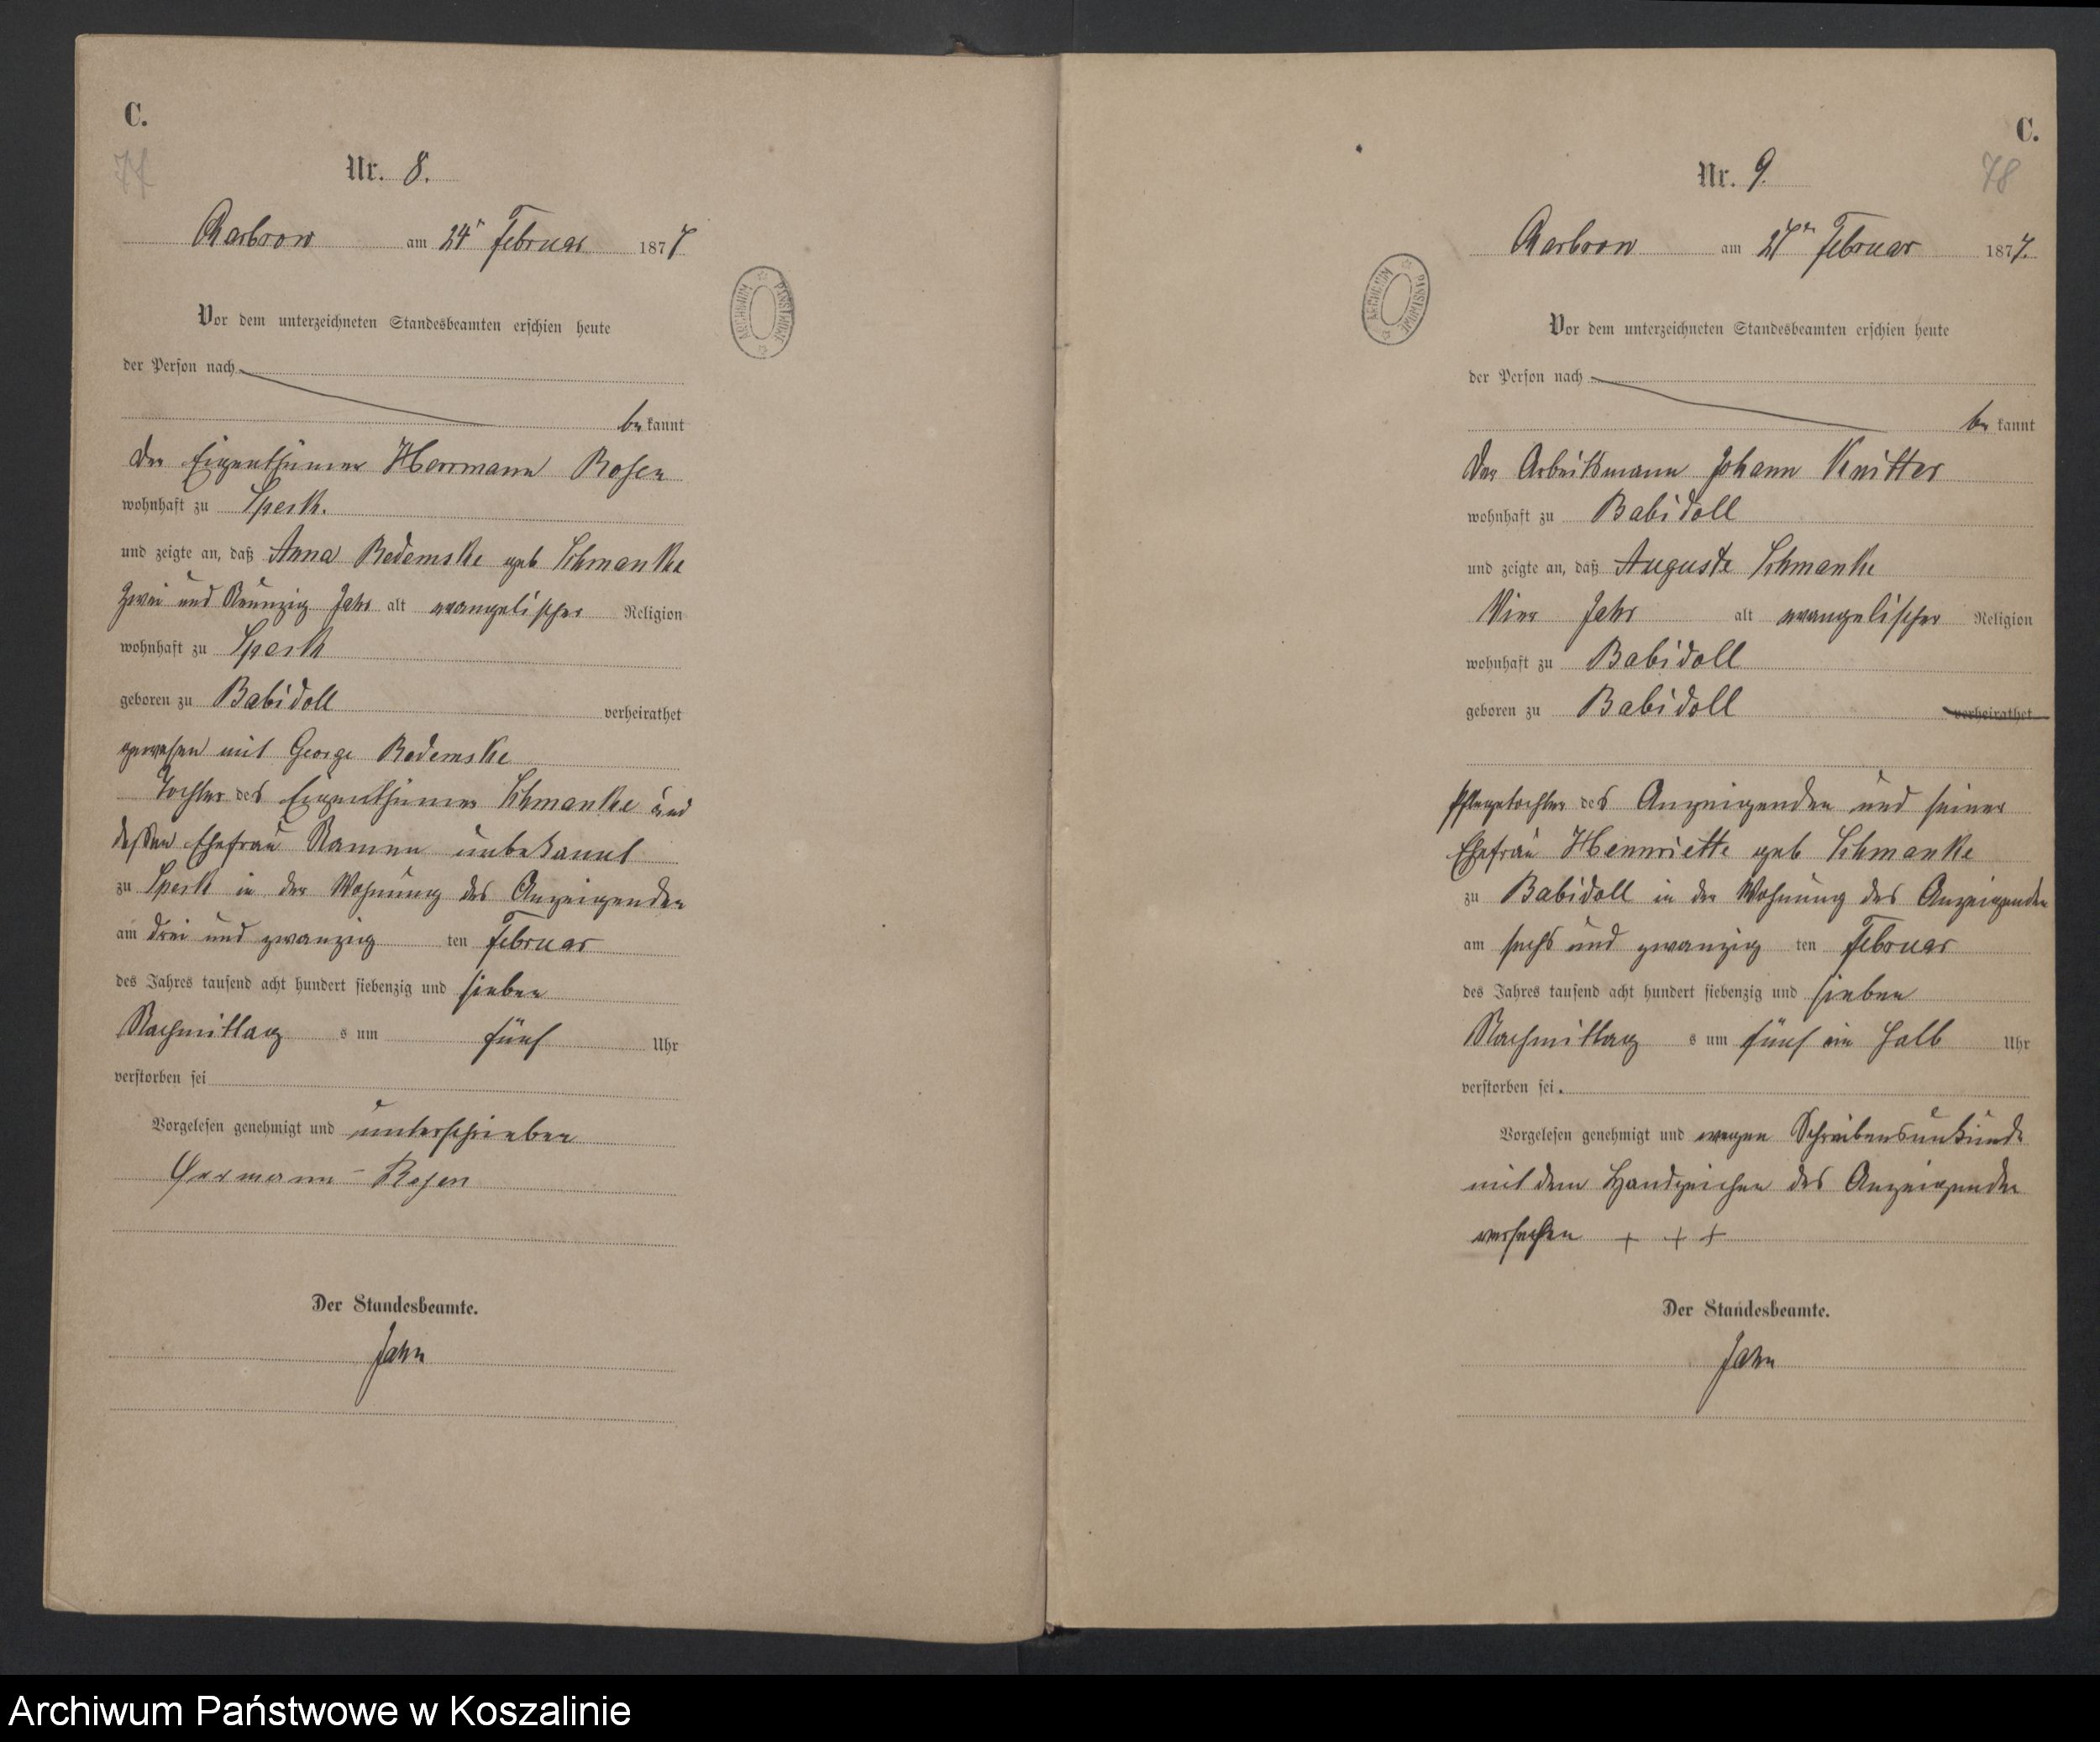 C.
77
Nr. 8.
Charbrow am 24ten Februar 1877
Vor dem unterzeichneten Standesbeamten erschien heute
der Person nach
be kannt
der Eigenthümer Herrmann Rosen
wohnhaft zu Speck.
und zeigte an, daß Anna Redemske geb Schmanke
Zwei und Neunzig Jahr alt evangelischer Religion
wohnhaft zu Speck
geboren zu Babidoll verheirathet
gewesen mit George Redemske
Tochter des Eigenthümer Schmanke und
dessen Ehefrau Namen unbekannt
zu Speck in der Wohnung des Anzeigenden
am drei und zwanzig ten Februar
des Jahres tausend acht hundert siebenzig und sieben
Nachmittag s um fünf Uhr
verstorben sei
Vorgelesen genehmigt und unterschrieben
Herrmann Rosen
Der Standesbeamte.
Jahn
ARCHIWUM PAŃSTWOWE
C.
78
Nr. 9.
Charbrow am 27ten Februar 1877.
Vor dem unterzeichneten Standesbeamten erschien heute
der Person nach
be kannt
der Arbeitsmann Johann Knitter
wohnhaft zu Babidoll
und zeigte an, daß Auguste Schmanke
Vier Jahr alt evangelischer Religion
wohnhaft zu Babidoll
geboren zu Babidoll verheirathet
Pflegetochter des Anzeigenden und seiner
Ehefrau Hennriette geb Schmanke
zu Babidoll in der Wohnung des Anzeigenden
am sechs und zwanzig ten Februar
des Jahres tausend acht hundert siebenzig und sieben
Nachmittag s um fünf ein halb Uhr
verstorben sei.
Vorgelesen genehmigt und wegen Schreibensunkunde
mit dem Handzeichen des Anzeigenden
versehen + + +
Der Standesbeamte.
Jahn
ARCHIWUM PAŃSTWOWE
Archiwum Państwowe w Koszalinie